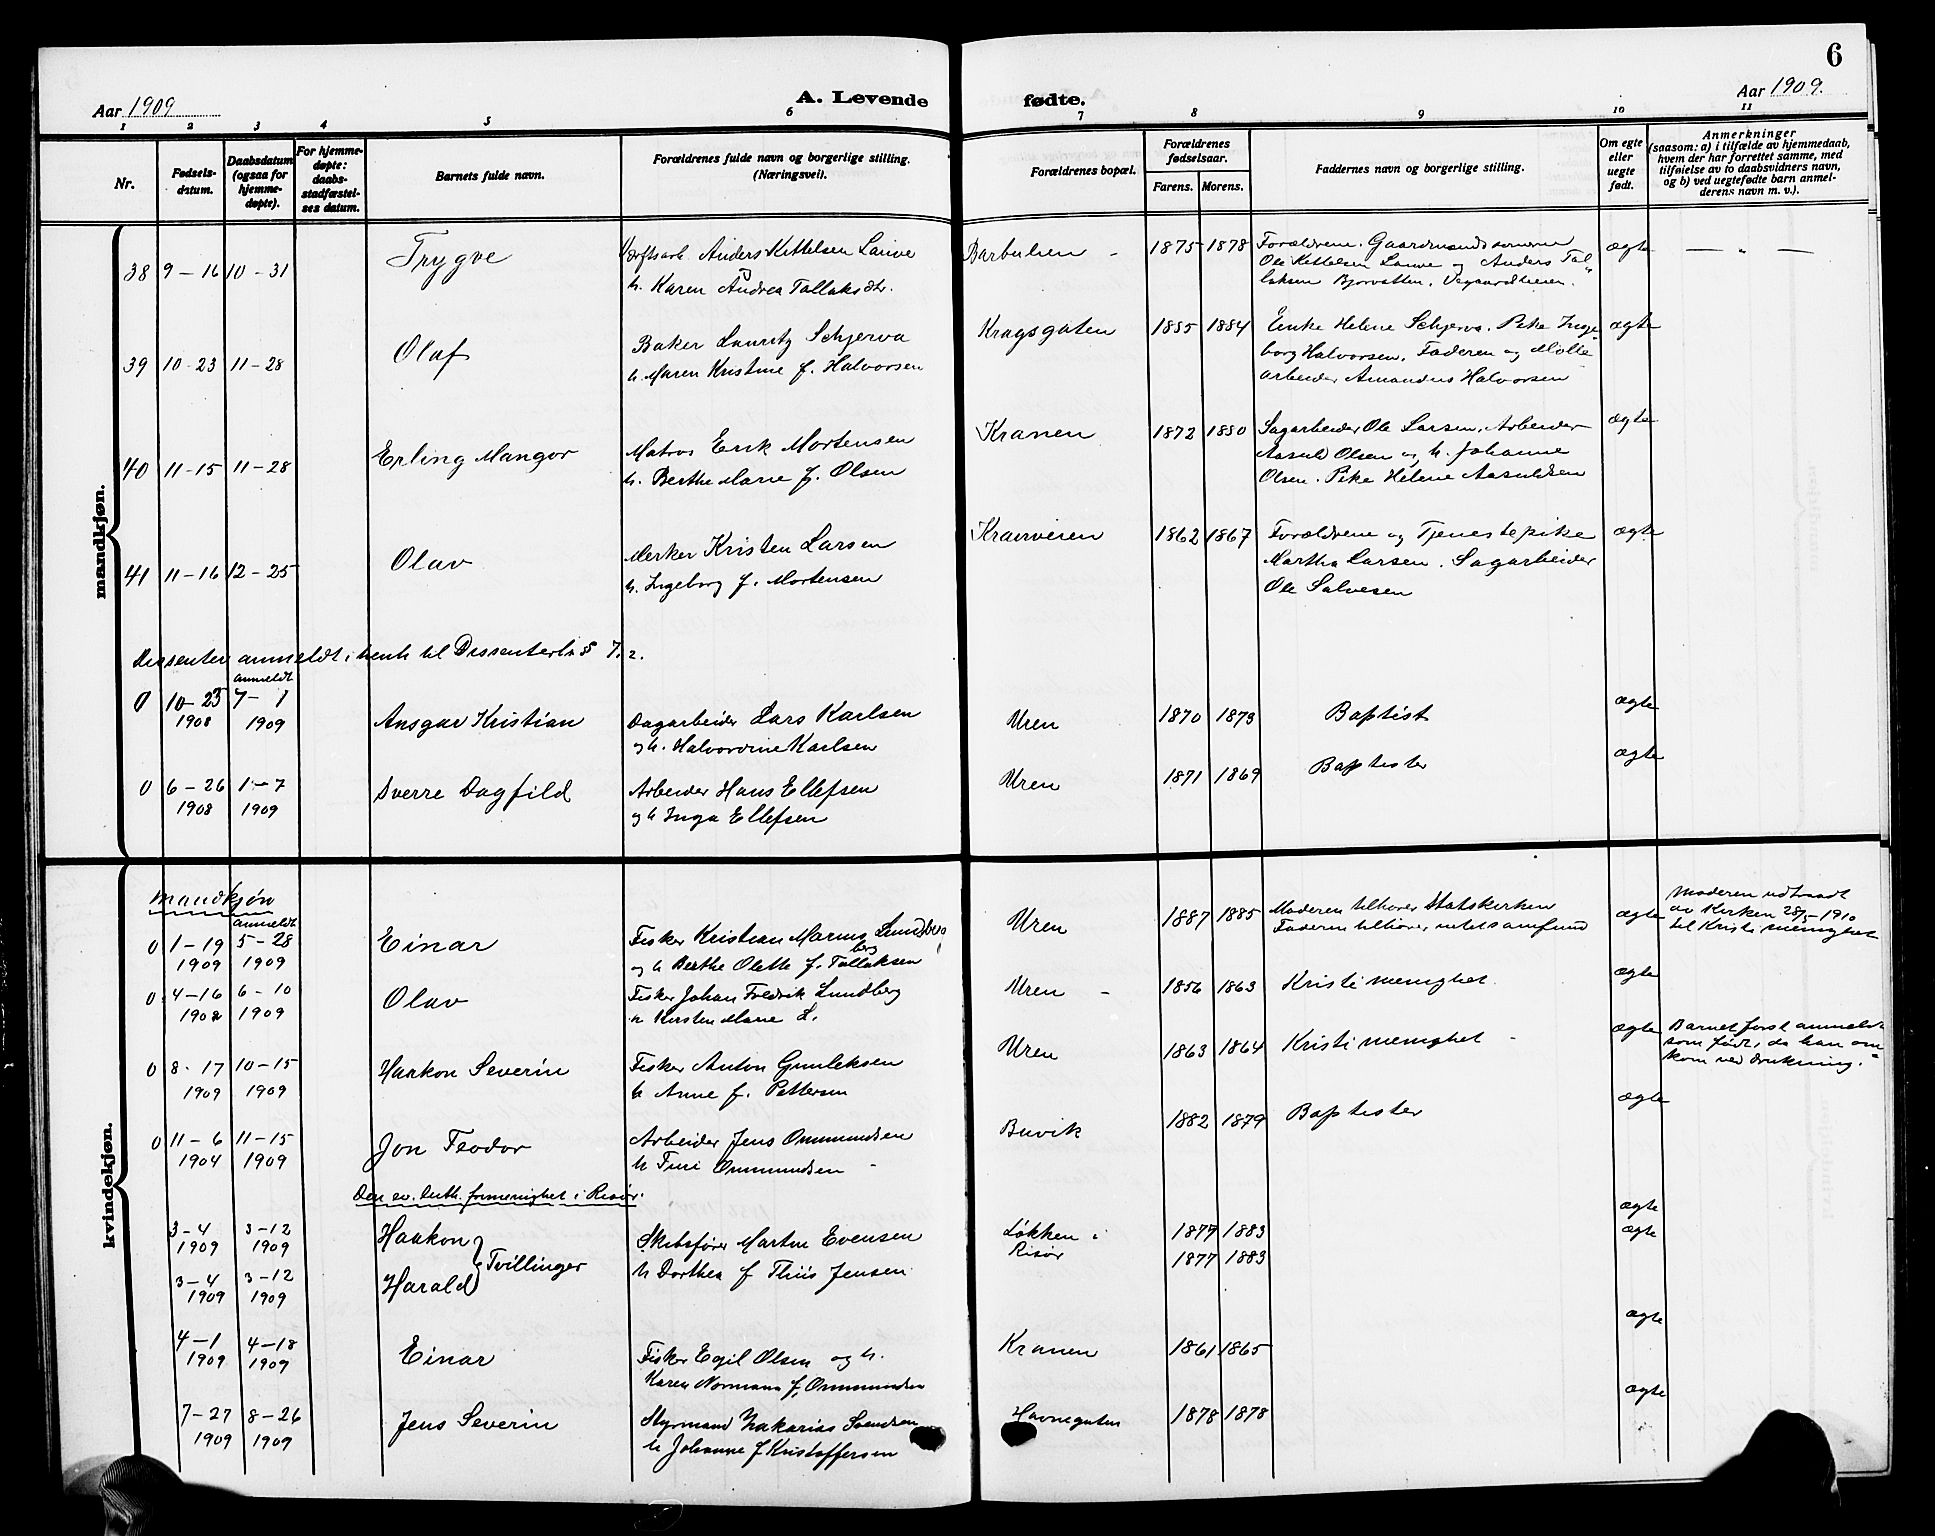 6
Aar 1909
A. Levende
fødte.
Aar 1909.
1 2 3 4 5 6 7 8 9 10 11
Nr.
Fødsels-
datum.
Daabsdatum
(ogsaa for
hjemme-
døpte).
For hjemme-
døpte:
daabs-
stadfæstel-
ses datum.
Barnets fulde navn.
Forældrenes fulde navn og borgerlige stilling.
(Næringsvei).
Forældrenes bopæl.
Forældrenes
fødselsaar.
Farens. Morens.
Faddernes navn og borgerlige stilling.
Om egte
eller
uegte
født.
Anmerkninger
(saasom: a) i tilfælde av hjemmedaab,
hvem der har forrettet samme, med
tilføielse av to daabsvidners navn,
og b) ved uegtefødte barn anmel-
derens navn m. v.).
mandkjøn.
38 9-16 10-31 Trygve
Anders Kettelsen Lauve
h. Karen Andrea Tallaksdtr.
Barbulien - 1875 1878
Forældrene. Gaardmandssønnerne
Ole Kettelsen Lauve og Anders Tal-
laksen Bjorvatten, Vegaardheien.
ægte — „ —
39 10-23 11-28 Olaf
Baker Lauritz Schjerva
h. Maren Kristine f. Halvorsen
Kragsgaten 1885 1884
Enke Helene Schjerva. Pike Inge-
borg Halvorsen. Faderen og Mølle
arbeider Amandus Halvorsen
ægte
40 11-15 11-28 Erling Mangor
Matros Erik Mortensen
h. Berthe Marie f. Olsen
Kranen 1872 1880
Sagarbeider Ole Larsen, Arbeider
Aasuld Olsen og h. Johanne
Olsen. Pike Helene Aasuldsen
ægte
41 11-16 12-25 Olav
Merker Kristen Larsen
h. Ingeborg f. Mortensen
Kranveien 1862 1867
Forældrene og Tjenestepike
Martha Larsen. Sagarbeider
Ole Salvesen
ægte
Dissenter anmeldt i henh til Dissenterl. § 7.2.
anmeldt
0 10-23 7-1
1908 1909
Ansgar Kristian
Dagarbeider Lars Karlsen
og h. Halvordine Karlsen
Uren 1870 1873 Baptist ægte
0 6-26 1-7
1908 1909
Sverre Dagfild
Arbeider Hans Ellefsen
og h Inga Ellefsen
Uren 1871 1869 Baptister ægte
kvindekjøn.
Mandkjøn
anmeldt
0 1-19 5-28
1909 1909
Einar
Fisker Kristian Marius Lundberg
og h Berthe Olette f. Tallaksen
Uren 1887 1885
Moderen tilhører Statskirken
Faderen tilhører intet samfund
ægte
Moderen udtraadt
av Kirken 28/5-1910
til Kristi menighet
0 4-16 6-10
1902 1909
Olav
Fisker Johan Fredrik Lundberg
h Kirsten Marie L.
Uren - 1856 1863 Kristi menighet ægte
0 8-17 10-15
1909 1909
Haakon Severin
Fisker Anton Gunleksen
h Anne f. Pettersen
Uren 1863 1864 Kristi menighet - ægte
Barnet først anmeldt
som født, da han om-
kom ved drukning.
0 11-6 11-15
1904 1909
Jon Teodor
Arbeider Jens Ommundsen
h Turi Ommundsen -
Buvik 1882 1879 Baptister ægte
Den ev. luth. frimenighet i Risør.
3-4 3-12
1909 1909
Haakon
3-4 3-12
1909 1909
Harald
Tvillinger
Skibsfører Martin Evensen
h Dorthea f Thiis Jensen
Løkken i
Risør
1877 1883
1877 1883
ægte
ægte
4-1 4-18
1909 1909
Einar
Fisker Egil Olsen og h.
Karen Normann f. Ommundsen
Kranen 1861 1865 ægte
7-27 8-26
1909 1909
Jens Severin
Styrmand Zakarias Svendsen
h Johanne f Kristoffersen
Havnegaten 1878 1878 ægte